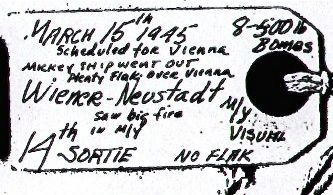 MARCH 15th 1945
8-500 lb
Bombs
Scheduled for Vienna
MICKEY SHIP WENT OUT
Plenty Flak over Vienna
Wiener-Neustadt
M/Y
VISUAL
Saw big fire
in M/Y
14th SORTIE NO FLAK